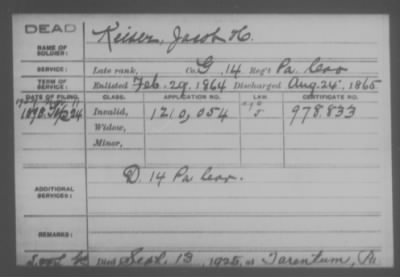 DEAD
NAME OF SOLDIER: Keiser, Jacob H.
SERVICE: Late rank, Co. G, 14 Reg't Pa. Cav
TERM OF SERVICE: Enlisted Feb. 29, 1864 Discharged Aug. 24, 1865
DATE OF FILING. CLASS. APPLICATION NO. LAW. CERTIFICATE NO.
1898. Invalid, 1210,054 978.833
Widow,
Minor,
ADDITIONAL SERVICES: D. 14 Pa Cav.
REMARKS:
Died Sept. 13, 1925, at Tarentum, Pa.